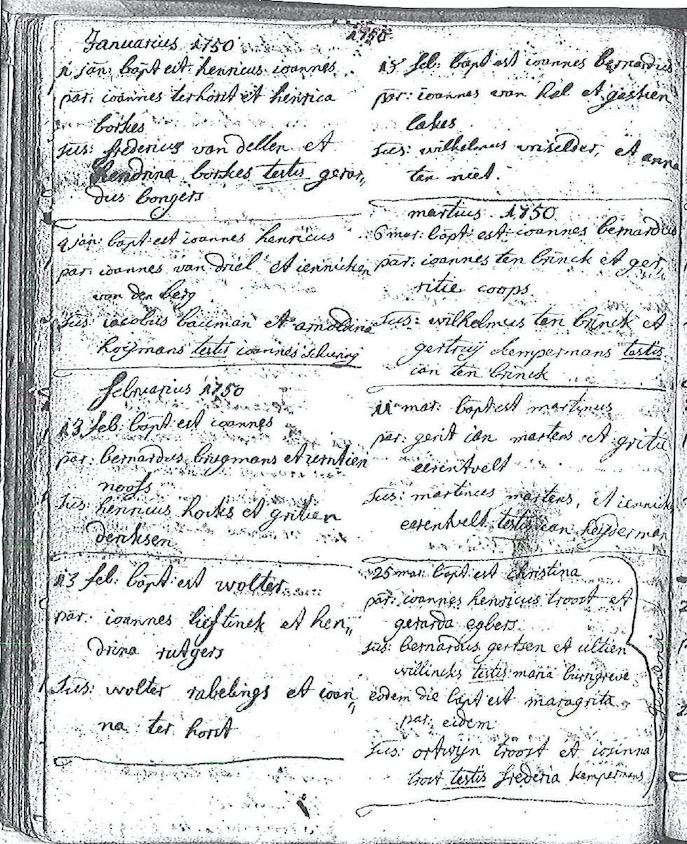 1750
Januarius 1750
11 jan: bapt est henricus ioannes
par: ioannes terhorst et henrica
borkes
sus: fredericus van dellen et
hendrina borskes testis gerar„
dus bongers
jan: bapt est ioannes henricus
par: ioannes van driel et iennicken
van den berg
sus: iacobus bauman et arnoldina
hoijmans testis ioannes
februarius 1750
13 feb: bapt est ioannes
par: bernardus brugmans et
sus henricus et gritien
dericksen
13 feb: bapt est wolter
par: ioannes lieftinck et hen„
drina rutgers
sus: wolter rabelings et ioan„
na ter horst
15 feb: bapt est ioannes bernardus
par: ioannes van hal et gesien
lakes
sus: wilhelmus vrselder, et anna
ten niet.
martius 1750
6 mar: bapt est ioannes bernardus
par: ioannes ten brinck et ger„
ritie coops
sus: wilhelmus ten brinck et
gertruij kempermans testis
ian ten brinck
11 mar: bapt est martinus
par: gerit ian martens et gritie
eerentvelt
sus: martinus martens, et iennick
eerentvelt testis ian
25 mar: bapt est christina
par: ioannes henricus troost et
gerarda egbers
sus: bernardus gertsen et ultien
willincks testis maria
eodem die bapt est maragrita
par: eidem
sus: ortwijn troost et iosinna
troost testis frederica kempermans